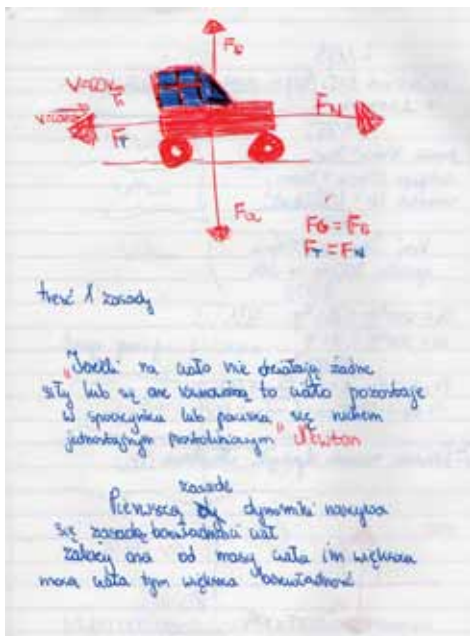 F_G
V=60 km/h
F_N
V=const
F_T
F_G
F_G = F_G
F_T = F_N
treść 1 zasady
"Jeżeli na ciało nie działają żadne
siły lub są one to ciało pozostaje
w spoczynku lub porusza się ruchem
jednostajnym prostoliniowym" Newton
zasadę
Pierwszą dynamiki nazywa
się zasadą bezwładności ciał
zależy ona od masy ciała im większa
masa ciała tym większa bezwładność